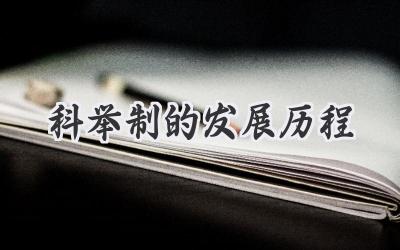 科举制的发展历程